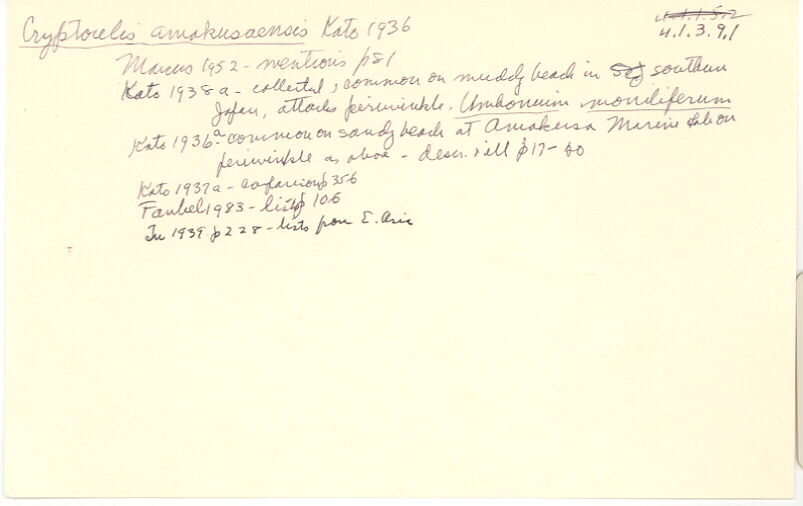 Cryptocelis amakusaensis Kato 1936
4.1.1.5.2
4.1.3.9.1
Marcus 1952 - mentions p81
Kato 1938a - collected, common on muddy beach in southern
Japan, attacks periwinkle, Umbonium moniliferum
Kato 1936a - common on sandy beach at Amakusa Marine Lab on
periwinkle as above - descr. & ill p17-
Kato 1937a - comparison p356
Faubel 1983 - lists p 106
Tu 1939 p228 - lists from E. Asia